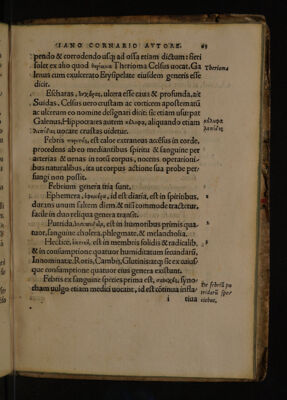 IANO CORNARIO AVTORE. 65
pendo & corrodendo usq; ad ossa etiam dictum: fieri
solet ex alio quod Therioma Celsus uocat. Ga Therioma
lenus cum exulcerato Erysipelate eiusdem generis esse
dicit.
Escharas, ulcera esse eius & profunda,
Suidas. Celsus uero crustam ac corticem apostematũ
ac ulcerum eo nomine designari dicit: sic etiam usurpat
Galenus. Hippocrates autem aliquando etiam
uocant crustas uidetur.
Febris est calor extraneus accẽsus in corde,
procedens ab eo mediantibus spiritu & sanguine per
arterias & uenas in totũ corpus, nocens operationi-
bus naturalibus, ita ut corpus actione sua probe per-
fungi non possit.
Febrium genera tria sunt.
Ephemera, id est diaria, est in spiritibus,
durans unum saltem diem, & nisi commode tractetur,
facile in duo reliqua genera transit.
Putrida, est in humoribus primis qua-
tuor, sanguine, cholera, phlegmate, & melancholia.
Hectice, est in membris solidis & radicalib.
& in consumptione quatuor humiditatum secundarũ,
Innominatæ, Roris, Cambiũ, Glutinis: atq; sic ex cuius-
que consumptione quatuor eius genera existunt.
Febris ex sanguine species prima est, syno-
cham uulgo etiam medici uocant, id est cõtinua infla-
De febriũ pu
tridarũ spe
ciebus.
i tiua